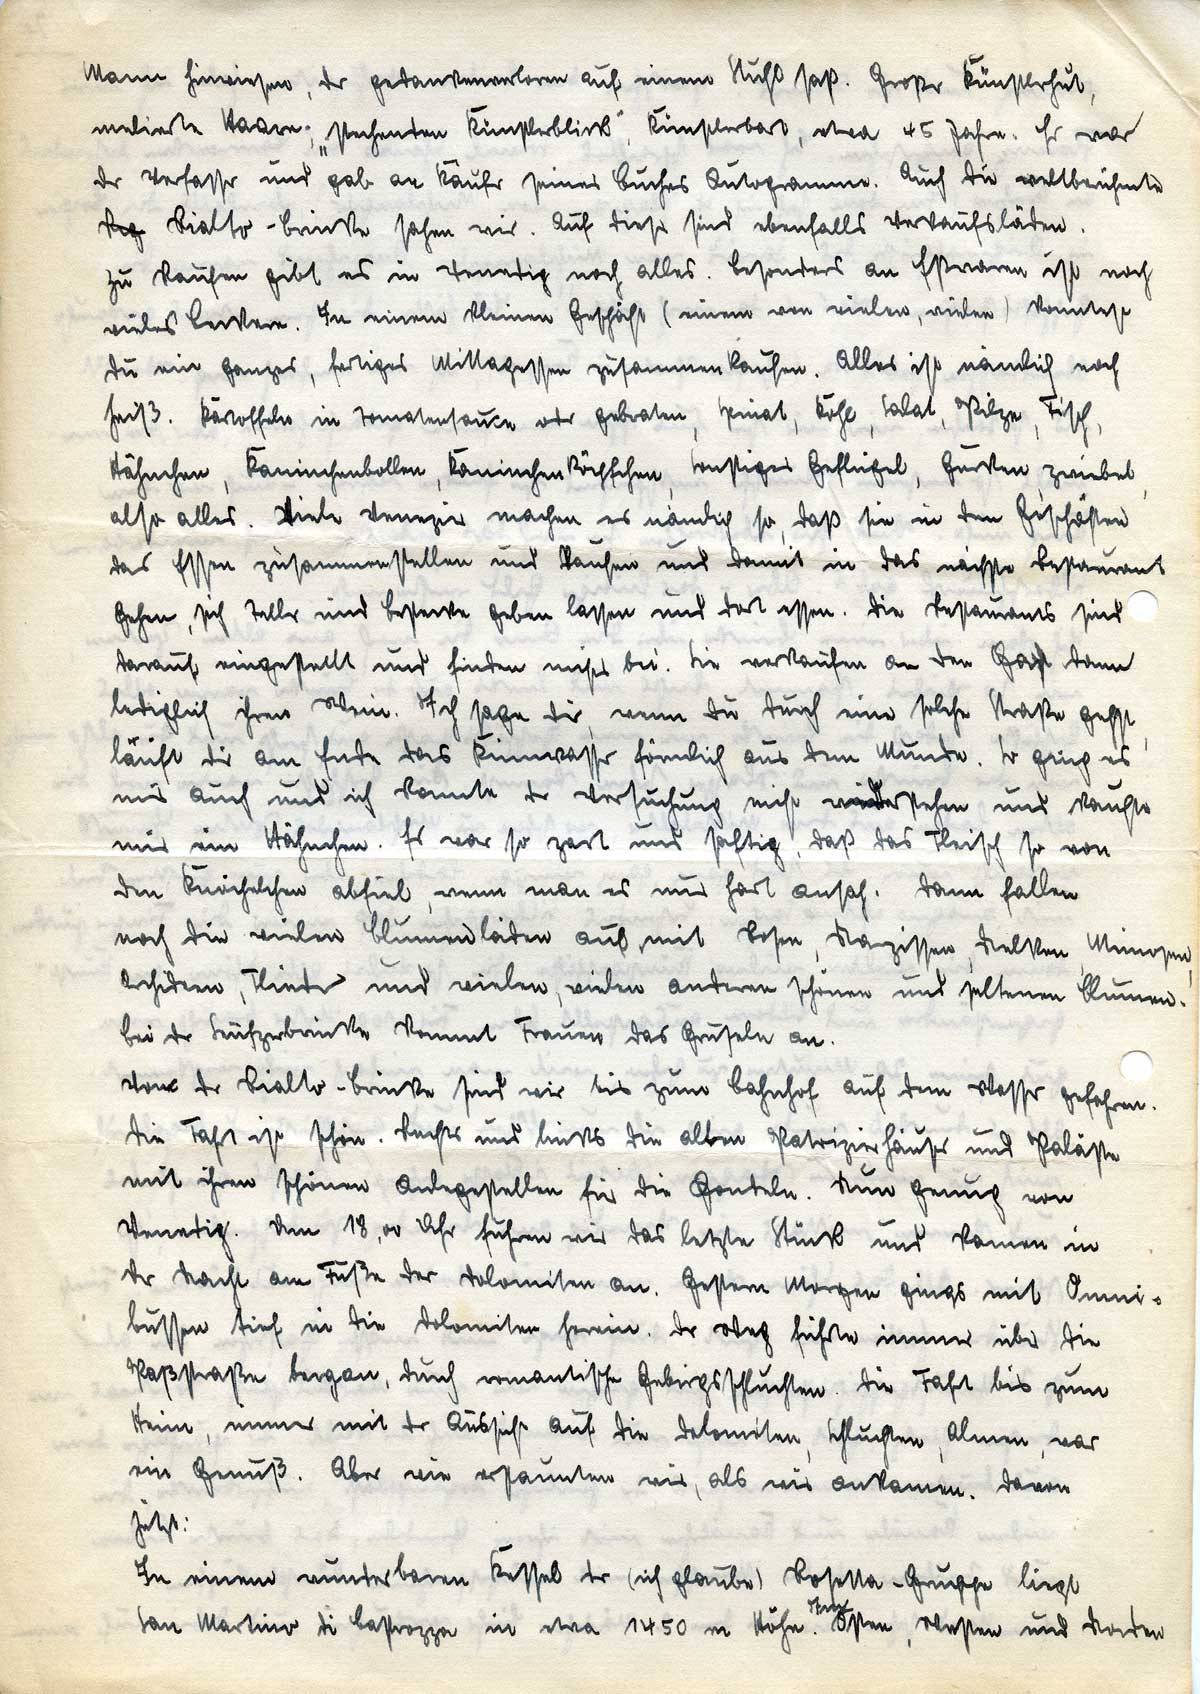 Mann hinwiesen, der gedankenverloren auf einem Stuhl saß. Großer Künstlerhut,
melierte Haare, „stechenden Künstlerblick“, Künstlerbart, etwa 45 Jahre. Er war
der Verfasser und gab an Käufer seines Buches Autogramme. Auch die weltberühmte
Rialto-Brücke sahen wir. Auf dieser sind ebenfalls Verkaufsläden.
Zu kaufen gibt es in Venedig noch alles. Besonders an Esswaren ist noch
vieles leckere. In einem kleinen Geschäft (einem von vielen, vielen) konntest
du ein ganzes, fertiges Mittagessen zusammenkaufen. Alles ist nämlich noch
heiß. Kartoffeln in Tomatensauce oder gebraten, Spinat, Kohl, Salat, Pilze, Fisch,
Hähnchen, Kaninchenbollen, Kaninchenköpfchen, sonstiges Geflügel, Gurken, Zwiebel,
also alles. Viele Venezier machen es nämlich so, daß sie in den Geschäften
das Essen zusammenstellen und kaufen und damit in das nächste Restaurant
gehen, sich Teller und Bestecke geben lassen und dort essen. Die Restaurants sind
darauf eingestellt und finden nichts bei. Sie verkaufen an den Gast dann
lediglich ihren Wein. Ich sage dir, wenn du durch eine solche Straße gehst,
läuft dir am Ende das Kinnwasser förmlich aus dem Munde. So ging es
mir auch und ich konnte der Versuchung nicht widerstehen und kaufte
mir ein Hähnchen. Es war so zart und saftig, daß das Fleisch so von
den Knöchelchen abfiel, wenn man es nur hart ansah. Dann fallen
noch die vielen Blumenläden auf, mit Rosen, Narzissen, Nelken, Mimosen,
Orchideen, Flieder und vielen, vielen anderen schönen und seltenen Blumen.
Bei der Seufzerbrücke kommt Frauen das Gruseln an.
Von der Rialto-Brücke sind wir bis zum Bahnhof auf dem Wasser gefahren.
Die Fahrt ist schön. Rechts und links die alten Patrizierhäuser und Paläste
mit ihren schönen Anlegestellen für die Gondeln. Nun genug von
Venedig. Um 18,00 Uhr fuhren wir das letzte Stück und kamen in
der Nacht am Fuße der Dolomiten an. Gestern Morgen gings mit Omni-
bussen tief in die Dolomiten herein. Der Weg führte immer über die
Paßstraße bergan, durch romantische Gebirgsschluchten. Die Fahrt bis zum
Heim, immer mit der Aussicht auf die Dolomiten, Schluchten, Almen, war
ein Genuß. Aber wie erstaunten wir, als wir ankamen. Davon
jetzt:
In einem wunderbaren Kessel der (ich glaube) Rosetta-Gruppe liegt
San Martino di Castrozza in etwa 1450 m Höhe. Im Osten, Westen und Norden